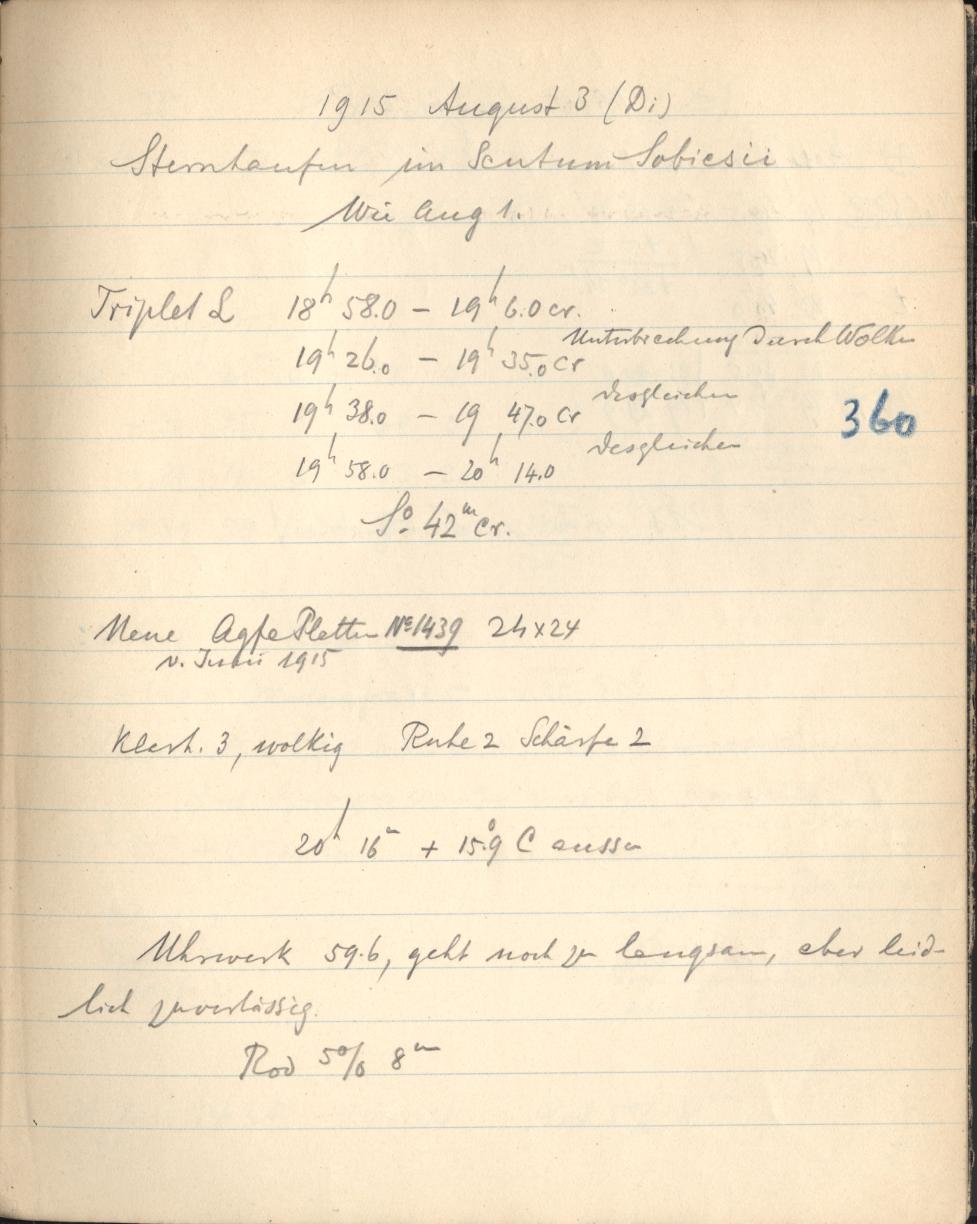 1915 August 3 (Di)
Sternhaufen im Scutum Sobiesii
Wie Aug 1.
Triplet L 18h 58.0 – 19h 6.0 cr.
Unterbrechung durch Wolken
19h 26.0 – 19h 35.0 cr
desgleichen
19h 38.0 – 19 47.0 cr
360
desgleichen
19h 58.0 – 20h 14.0
So. 42m cr.
Neue Agfa Platten No 1439 24x24
v. Juni 1915
Klarh. 3, wolkig Ruhe 2 Schärfe 2
20h 16m + 15.°9 C aussen
Uhrwerk 59.6, geht noch zu langsam, aber leid-
lich zuverlässig.
Rod 5% 8m